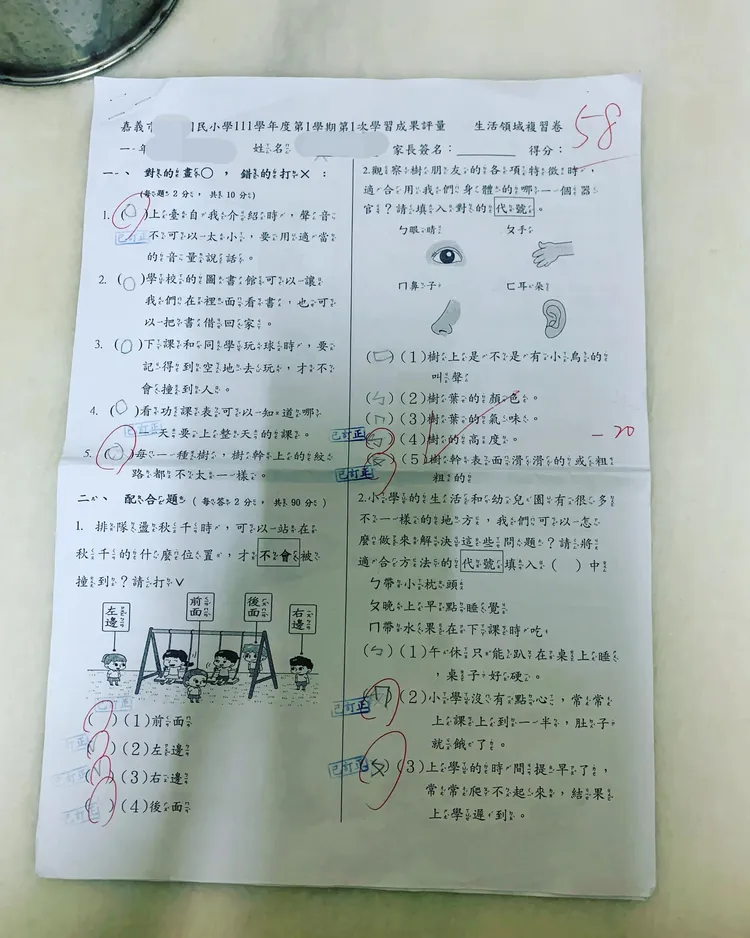 嘉義市
國民小學111學年度第1學期第1次學習成果評量 生活領域複習卷
58
一年
姓名
家長簽名：
得分：
一、對的畫○，錯的打×：
(每題2分，共10分)
1. (○)上臺自我介紹時，聲音
已訂正
不可以太小，要用適當
的音量說話。
2. (○)學校的圖書館可以讓
我們在裡面看書，也可
以把書借回家。
3. (○)下課和同學玩球時，要
記得到空地去玩，才不
會撞到人。
4. (○)看功課表可以知道哪
已訂正
天要上整天的課。
5. (○)每一種樹，樹幹上的紋
路都不太一樣。
二、配合題 (每答2分，共90分)
1. 排隊盪秋千時，可以站在
秋千的什麼位置，才不會被
撞到？請打ˇ
左邊
前面
後面
右邊
已訂正
( )(1)前面
已訂正
(ˇ)(2)左邊
已訂正
(ˇ)(3)右邊
已訂正
( )(4)後面
2.觀察樹朋友的各項特徵時，
適合用我們身體的哪一個器
官？請填入對的代號。
ㄅ眼睛
ㄆ手
ㄇ鼻子
ㄈ耳朵
(ㄈ)(1)樹上是不是有小鳥的
叫聲
(ㄅ)(2)樹葉的顏色。
(ㄇ)(3)樹葉的氣味。
已訂正
(ㄅ)(4)樹的高度。
－20
已訂正
(ㄆ)(5)樹幹表面滑滑的或粗
粗的
2.小學的生活和幼兒園有很多
不一樣的地方，我們可以怎
麼做來解決這些問題？請將
適合方法的代號填入( )中
ㄅ帶小枕頭
ㄆ晚上早點睡覺
ㄇ帶水果在下課時吃
(ㄅ)(1)午休只能趴在桌上睡
，桌子好硬。
已訂正
(2)小學沒有點心，常常
上課上到一半，肚子
就餓了。
已訂正
(ㄆ)(3)上學的時間提早了，
常常爬不起來，結果
上學遲到。